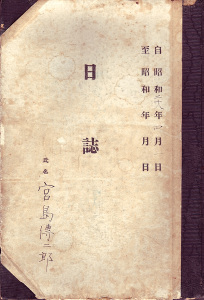 自昭和 年 月 日
至昭和 年 月 日
日誌
氏名 宮島 三郎